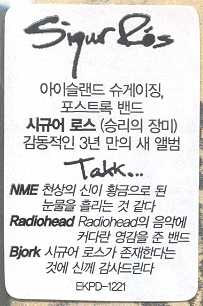 Sigur Rós
아이슬랜드 슈게이징,
포스트록 밴드
시규어 로스 (승리의 장미)
감동적인 3년 만의 새 앨범
Takk...
NME 천상의 신이 황금으로 된
눈물을 흘리는 것 같다
Radiohead Radiohead의 음악에
커다란 영감을 준 밴드
Bjork 시규어 로스가 존재한다는
것에 신께 감사드린다
EKPD-1221